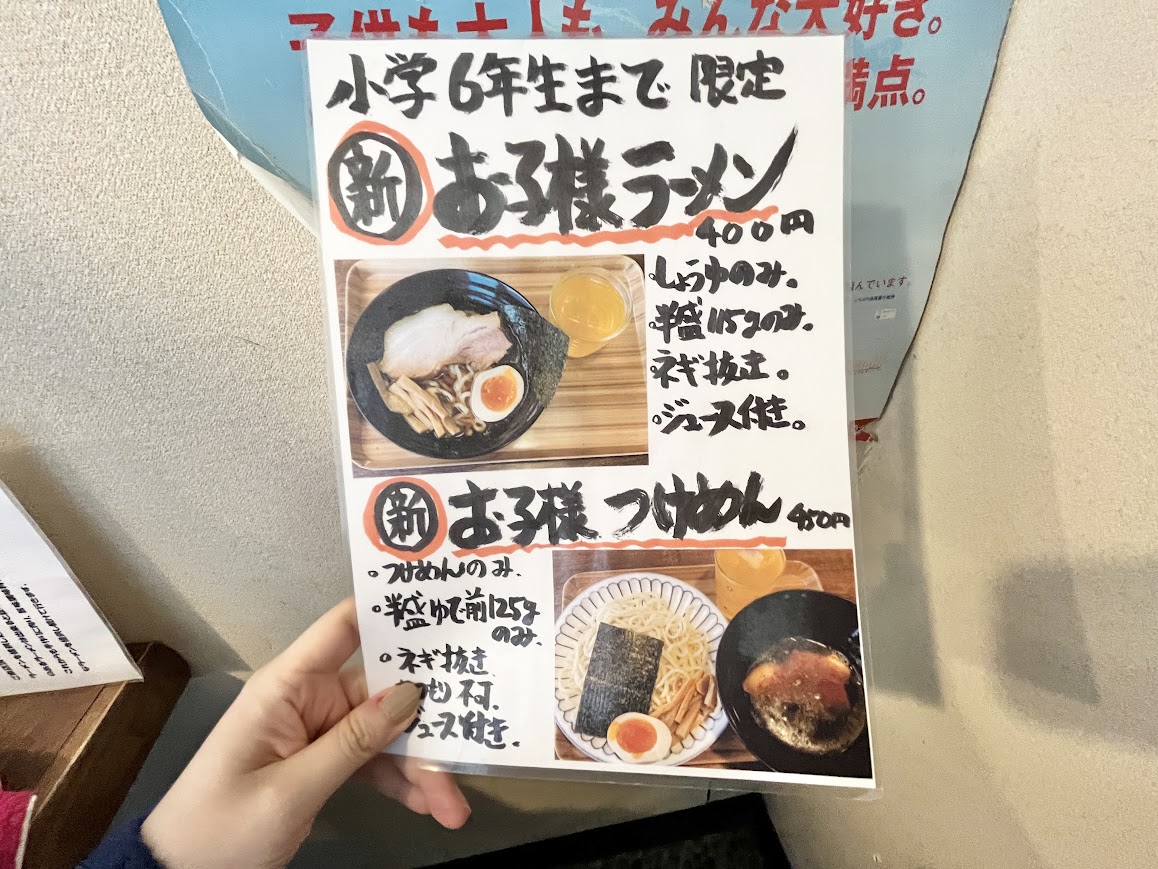 みんな大好き。
満点。
んでいます。
小学6年生まで 限定
新 お子様ラーメン
400円
しょうゆのみ。
半盛115gのみ。
ネギ抜き。
ジュース付き。
新 お子様 つけめん 450円
つけめんのみ.
半盛ゆで前125g
のみ.
ネギ抜き.
もり 不可.
ジュース付き.